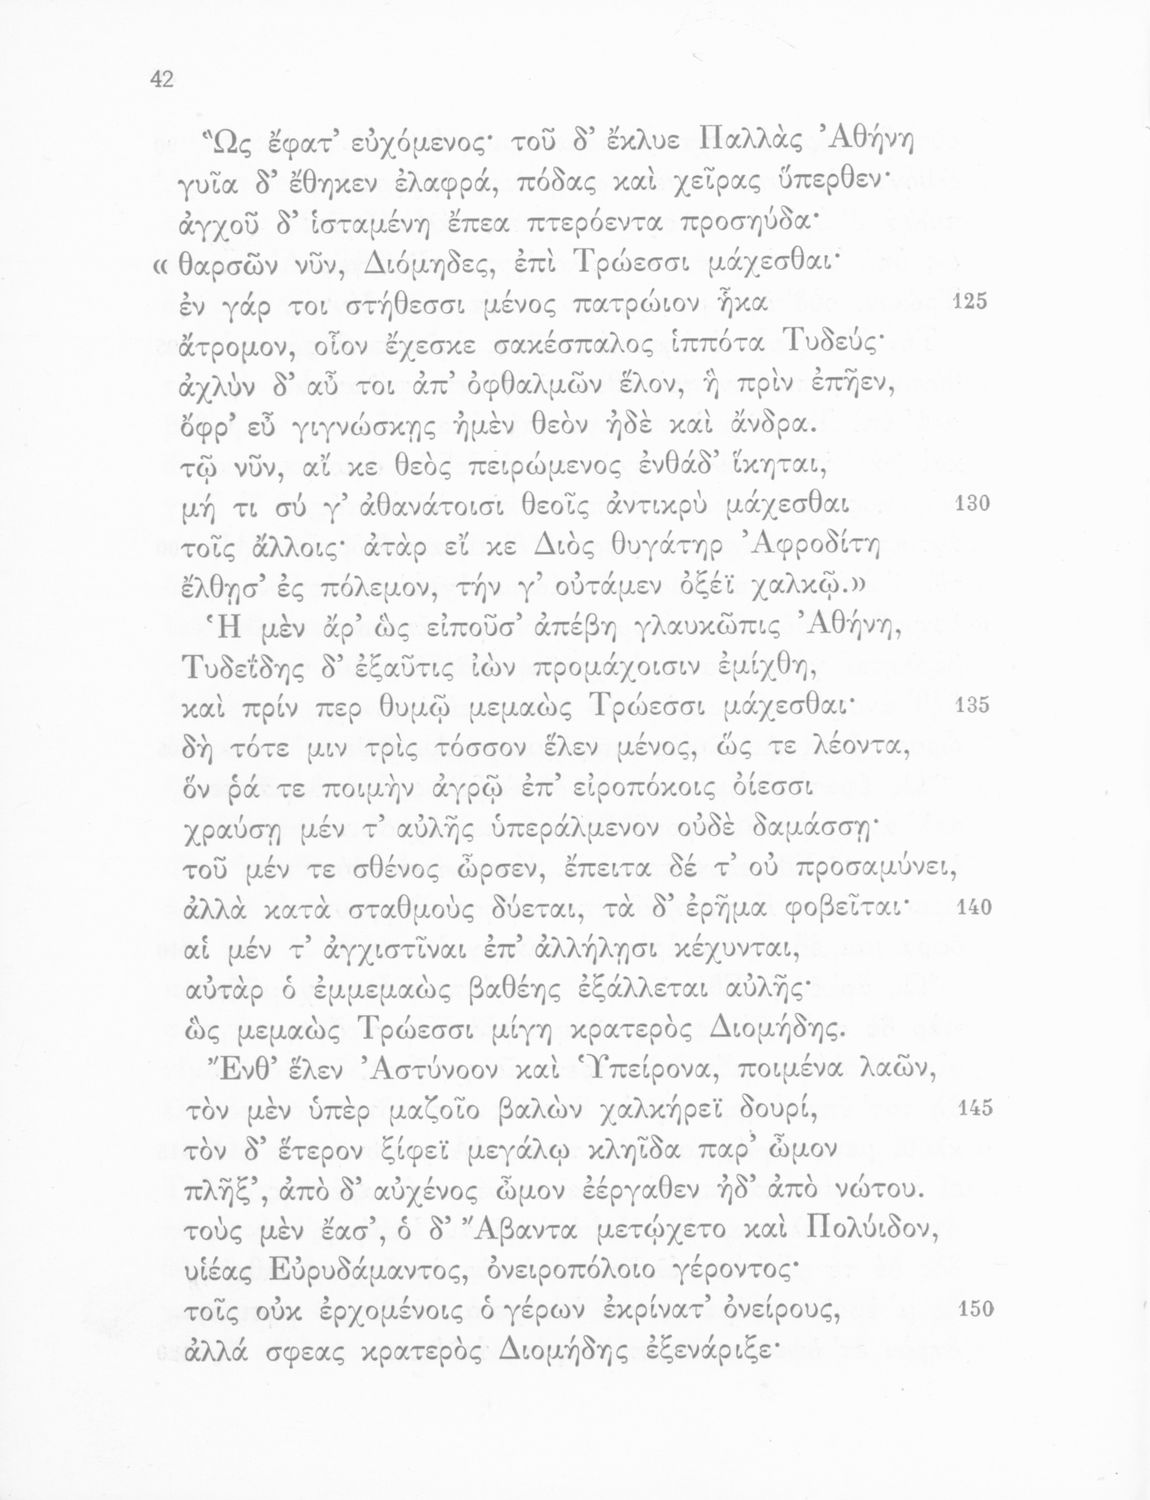 42
Ὣς ἔφατ’ εὐχόμενος· τοῦ δ’ ἔκλυε Παλλὰς Ἀθήνη
γυῖα δ’ ἔθηκεν ἐλαφρά, πόδας καὶ χεῖρας ὕπερθεν·
ἀγχοῦ δ’ ἱσταμένη ἔπεα πτερόεντα προσηύδα·
« θαρσῶν νῦν, Διόμηδες, ἐπὶ Τρώεσσι μάχεσθαι·
ἐν γάρ τοι στήθεσσι μένος πατρώιον ἧκα 125
ἄτρομον, οἷον ἔχεσκε σακέσπαλος ἱππότα Τυδεύς·
ἀχλὺν δ’ αὖ τοι ἀπ’ ὀφθαλμῶν ἕλον, ἣ πρὶν ἐπῆεν,
ὄφρ’ εὖ γιγνώσκῃς ἠμὲν θεὸν ἠδὲ καὶ ἄνδρα.
τῷ νῦν, αἴ κε θεὸς πειρώμενος ἐνθάδ’ ἵκηται,
μή τι σύ γ’ ἀθανάτοισι θεοῖς ἀντικρὺ μάχεσθαι 130
τοῖς ἄλλοις· ἀτὰρ εἴ κε Διὸς θυγάτηρ Ἀφροδίτη
ἔλθῃσ’ ἐς πόλεμον, τήν γ’ οὐτάμεν ὀξέϊ χαλκῷ.»
Ἡ μὲν ἄρ’ ὣς εἰποῦσ’ ἀπέβη γλαυκῶπις Ἀθήνη,
Τυδεΐδης δ’ ἐξαῦτις ἰὼν προμάχοισιν ἐμίχθη,
καὶ πρίν περ θυμῷ μεμαὼς Τρώεσσι μάχεσθαι· 135
δὴ τότε μιν τρὶς τόσσον ἕλεν μένος, ὥς τε λέοντα,
ὅν ῥά τε ποιμὴν ἀγρῷ ἐπ’ εἰροπόκοις ὀίεσσι
χραύσῃ μέν τ’ αὐλῆς ὑπεράλμενον οὐδὲ δαμάσσῃ·
τοῦ μέν τε σθένος ὦρσεν, ἔπειτα δέ τ’ οὐ προσαμύνει,
ἀλλὰ κατὰ σταθμοὺς δύεται, τὰ δ’ ἐρῆμα φοβεῖται· 140
αἱ μέν τ’ ἀγχιστῖναι ἐπ’ ἀλλήλῃσι κέχυνται,
αὐτὰρ ὁ ἐμμεμαὼς βαθέης ἐξάλλεται αὐλῆς·
ὣς μεμαὼς Τρώεσσι μίγη κρατερὸς Διομήδης.
Ἔνθ’ ἕλεν Ἀστύνοον καὶ Ὑπείρονα, ποιμένα λαῶν,
τὸν μὲν ὑπὲρ μαζοῖο βαλὼν χαλκήρεϊ δουρί, 145
τὸν δ’ ἕτερον ξίφεϊ μεγάλῳ κληῖδα παρ’ ὦμον
πλῆξ’, ἀπὸ δ’ αὐχένος ὦμον ἐέργαθεν ἠδ’ ἀπὸ νώτου.
τοὺς μὲν ἔασ’, ὁ δ’ Ἄβαντα μετῴχετο καὶ Πολύιδον,
υἱέας Εὐρυδάμαντος, ὀνειροπόλοιο γέροντος·
τοῖς οὐκ ἐρχομένοις ὁ γέρων ἐκρίνατ’ ὀνείρους, 150
ἀλλά σφεας κρατερὸς Διομήδης ἐξενάριξε·